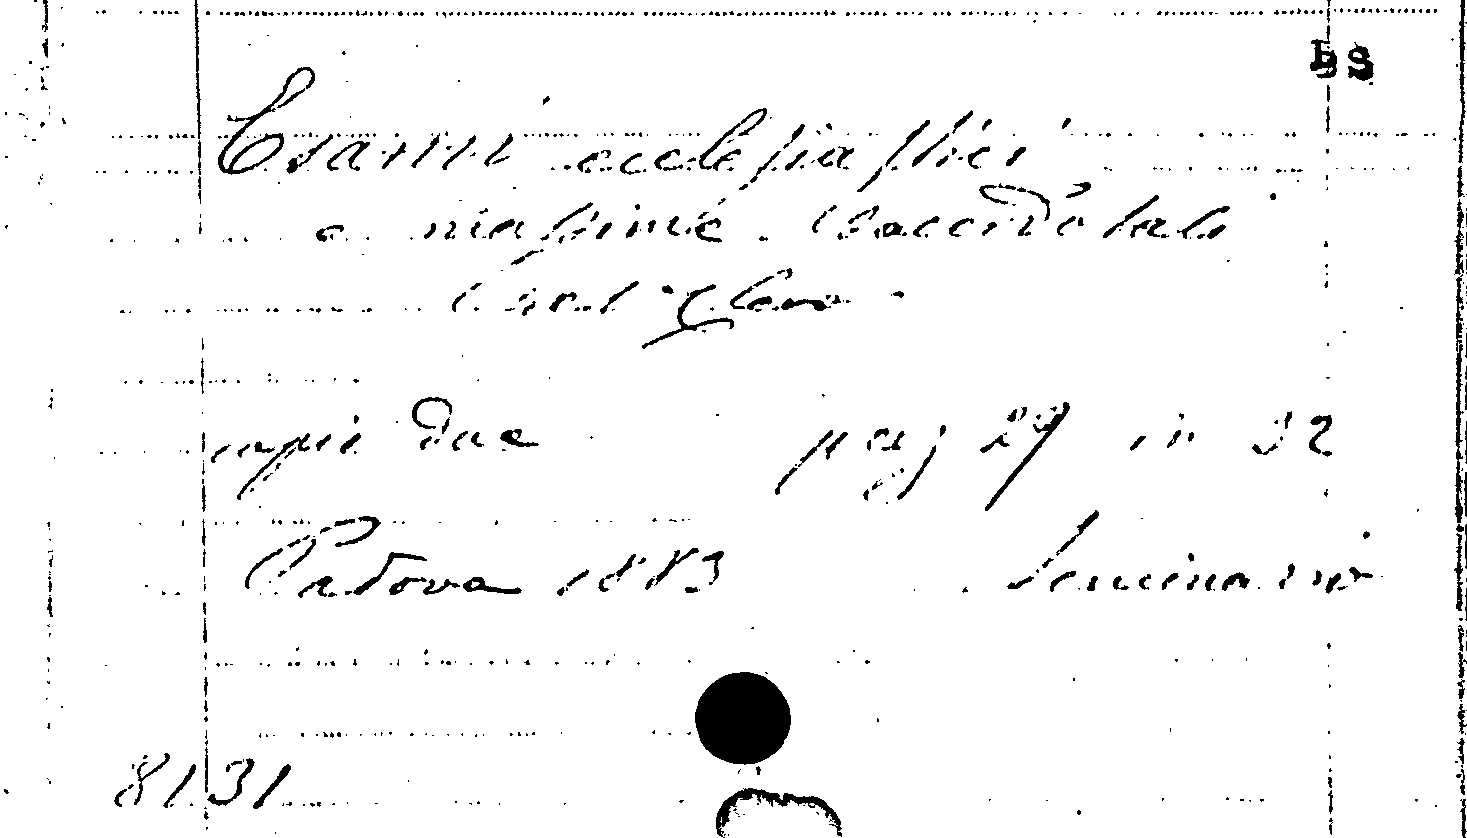 BS
Esami ecclesiastici
e massime Sacerdotali
copie due pag 29 in 32
Padova 1883 Seminario
8131